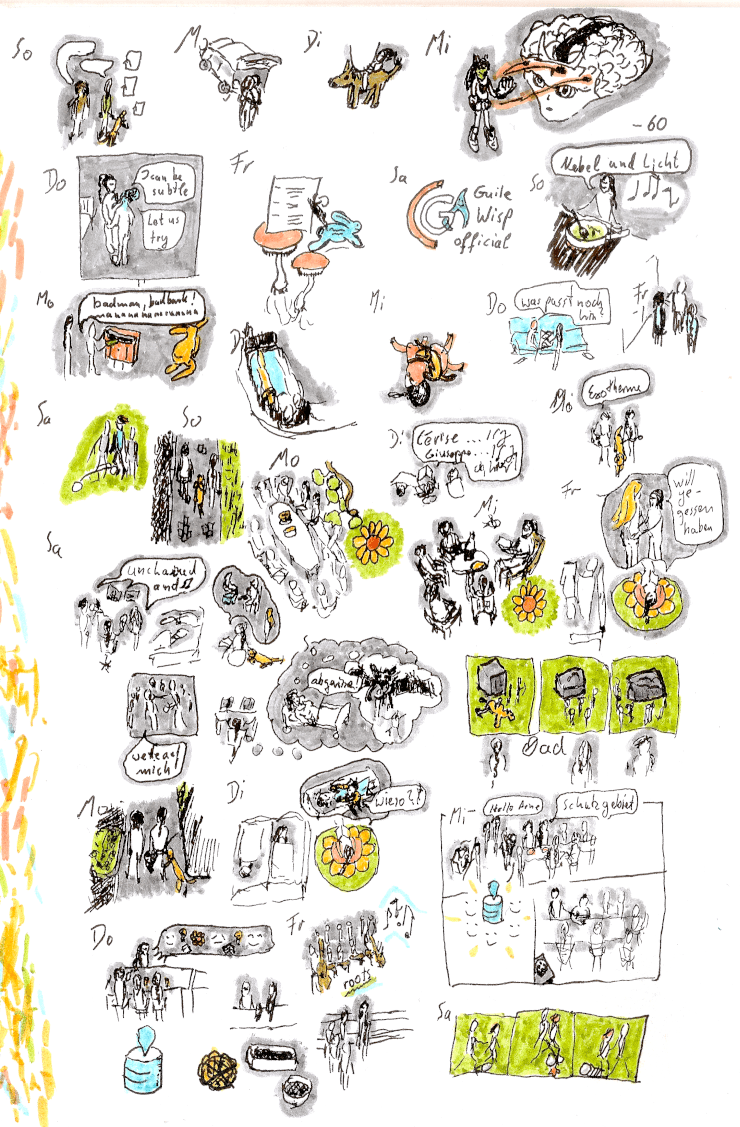 So
M
Di
Mi
-60
Do
I can be
subtle
Let us
try
Fr
Sa
Guile
Wisp
official
So
Nebel und Licht
Mo
badman, badbark!
Di
Mi
Do
was passt noch
hin?
Fr
Sa
So
Mo
Di
Cerise...
Giuseppe...
Mi
Exotherme
Mi
Fr
will
ge-
gessen
haben
Sa
unchained
and
abgerine!
wette auf
mich
Bad
Mo
Di
wieso?!
Mi
Hallo Arne
Schutzgebiet
Do
Fr
roots
Sa